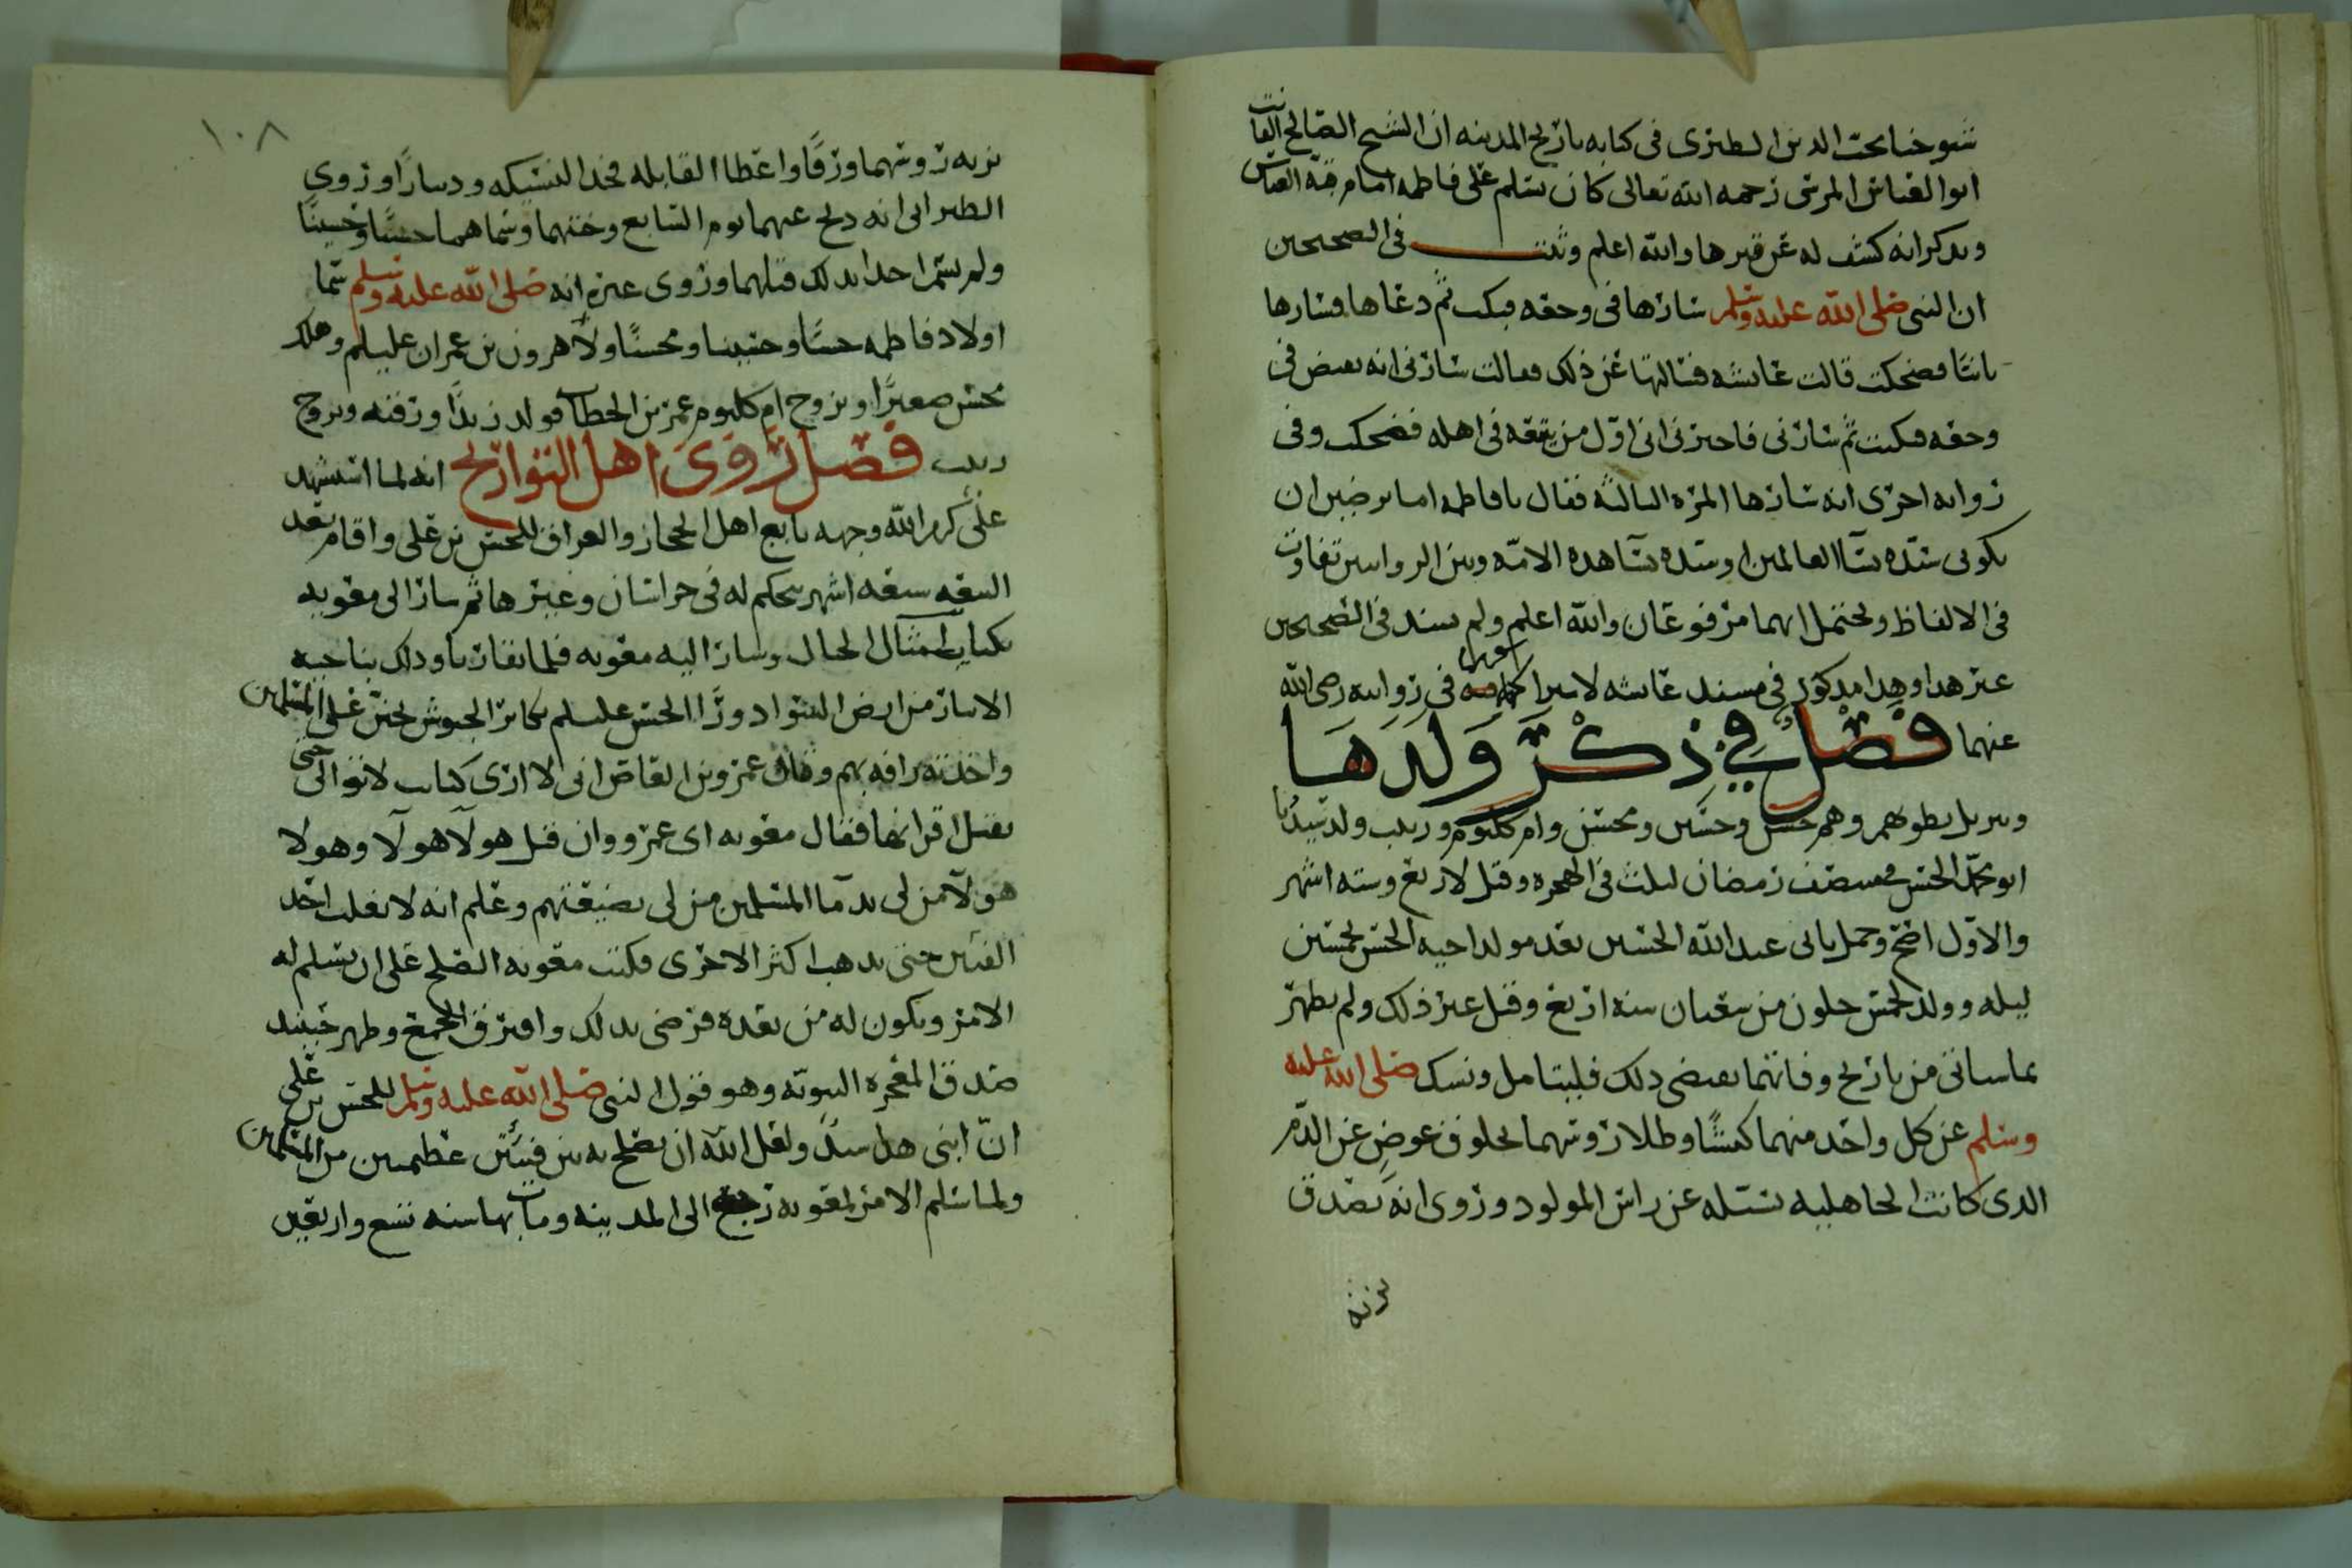 شيوخنا محب الدين الطبري في كتابه تاريخ المدينه ان الشيخ الصالح
ابو العباس المرسي رحمه الله تعالى كان يسلم على فاطمه امام قبة العباس
ويذكر انه كشف له عن قبرها والله اعلم وثبت في الصحيحين
ان النبي صلى الله عليه وسلم سارها في وجعه فبكت ثم دعاها فسارها
ثانيا فضحكت قالت عائشه فسالتها عن ذلك فقالت سارني انه يقبض في
وجعه فبكيت ثم سارني فاخبرني اني اول من يتبعه في اهله فضحكت وفي
روايه اخرى انه سارها المره الثالثه فقال يا فاطمه اما ترضين ان
تكوني سيده نسآ العالمين او سيده نسآ هذه الامه وبين الروايتين تفاوت
في الالفاظ ويحتمل انهما مرفوعان والله اعلم ولم يسند في الصحيحين
غير هذا وهذا مذكور في مسند عائشه في روايه رضي الله
عنهما فصل في ذكر ولدها
وهم حسن وحسين ومحسن وام كلثوم وزينب ولد سيدنا
ابو محمد الحسن منتصف رمضان لثلث في الهجره وقيل لاربع وسته اشهر
والاول اصح وحمل بابي عبد الله الحسين بعد مولد اخيه الحسن بخمسين
ليله وولد لخمس خلون من شعبان سنه اربع وقيل غير ذلك ولم يظهر
مما سياتي من تاريخ وفاتهما يقتضي ذلك فليتامل ونسك صلى الله عليه
وسلم عن كل واحد منهما كبشا وطلا روسهما بخلوق عوض عن الدم
الذي كانت الجاهليه تستله عن راس المولود وروي انه تصدق
بزنة
١٠٨
بزنه روسهما ورقا واعطا القابله فخذ النسيكه ودينارا وروى
الطبراني انه ذبح عنهما يوم السابع وختنهما وسماهما حسنا وحسينا
ولم يسم احدا بذلك قبلهما وروى غيره انه صلى الله عليه وسلم سما
اولاد فاطمه حسنا وحسينا ومحسنا ولآ هرون بن عمران عليلم وهلك
محسن صغيرا وتزوج ام كلثوم عمر بن الخطاب فولد زيدا ورقيه وتزوج
زينب فصل روى اهل التواريخ انه لما استشهد
علي كرم الله وجهه بايع اهل الحجاز والعراق للحسن بن علي واقام بعد
البيعه سبعه اشهر يحكم له في خراسان وغيرها ثم سار الى معويه
الحال وسار اليه معويه فلما تقاربا وذلك بناحيه
الانبار من ارض السواد ورآ الحسن عليلم تكاثر الجيوش تحنن على المسلمين
واخذته رافه بهم وقال عمرو بن العاص اني لا ارى كتايب لا تولي حتى
يقتل اقرانها فقال معويه اى عمرو وان قتل هولآ هولآ وهولا
هولآ من لي بدمآ المسلمين من لي بضيعتهم وعلم انه لا يغلب احد
الفئتين حتى يذهب اكثر الاخرى فكتب معويه الصلح على ان يسلم له
الامر ويكون له من بعده فرضي بذلك وافترق الجمع وظهر حينئذ
صدق المعجزه النبويه وهو قول النبي صلى الله عليه وسلم للحسن بن علي
ان ابني هذا سيد ولعل الله ان يصلح به بين فئتين عظيمتين من المسلمين
ولما سلم الامر لمعويه رجع الى المدينه ومات بها سنه تسع واربعين